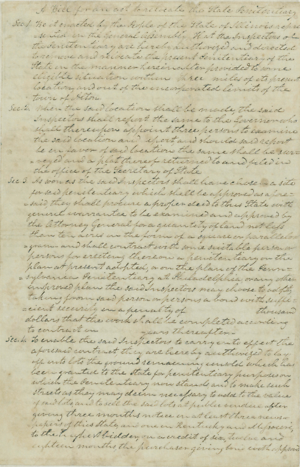 A Bill for an act to relocate the State Penitentiary
Sec 1. Be it enacted by the People of the State of Illinois repre
sented in the General Assembly That the Inspectors of
the Penitentiary are hereby authorized and directed
to remove and relocate the present Penitentiary of the
State in the manner hereinafter provided to some
eligible situation within three miles of its present
location and out of the incorporated limits of the
town of Alton
Sec 2. When the said location shall be made, the said
Inspectors shall report the same to the Governor who
shall thereupon appoint three persons to examine
the said location and report and should said report
be in favor of said location the same shall be surve
yed and a plat thereof returned to and filed in
the office of the Secretary of State
Sec 3. As soon as the said Inspectors shall have chosen a site
for said penitentiary which shall be approved as afore
said they shall procure a proper deed to this State with
general warrantee to be examined and approved by
the Attorney General for a quantity of land not less
than ten acres in the form of a square or parallelo
gram and shall contract with some suitable person or
persons for erecting thereon a penitentiary on the
plan at present adopted, or on the plan of the Penn
sylvania Penitentiary at Philadelphia or any other
improved plan the said Inspectors may choose to adopt
taking from said person or persons a bond with suffi
cient security in a penalty of thousand
dollars that the work shall be completed according
to contract in years thereafter
Sec 4. To enable the said Inspectors to carry into effect the
aforesaid contract they are hereby authorized to lay
off into lots the ground remaining unsold which has
been granted to the State for penitentiary purposes on
which the Penitentiary now stands and to make such
streets as they may deem necessary to add to the value
of said lots and to sell the said lots at public vendue after
giving three months notice in at least three news
papers of this State and one in Kentucky and disposing
to the highest bidders on a credit of six, twelve and
eighteen months the purchaser giving bond with approved